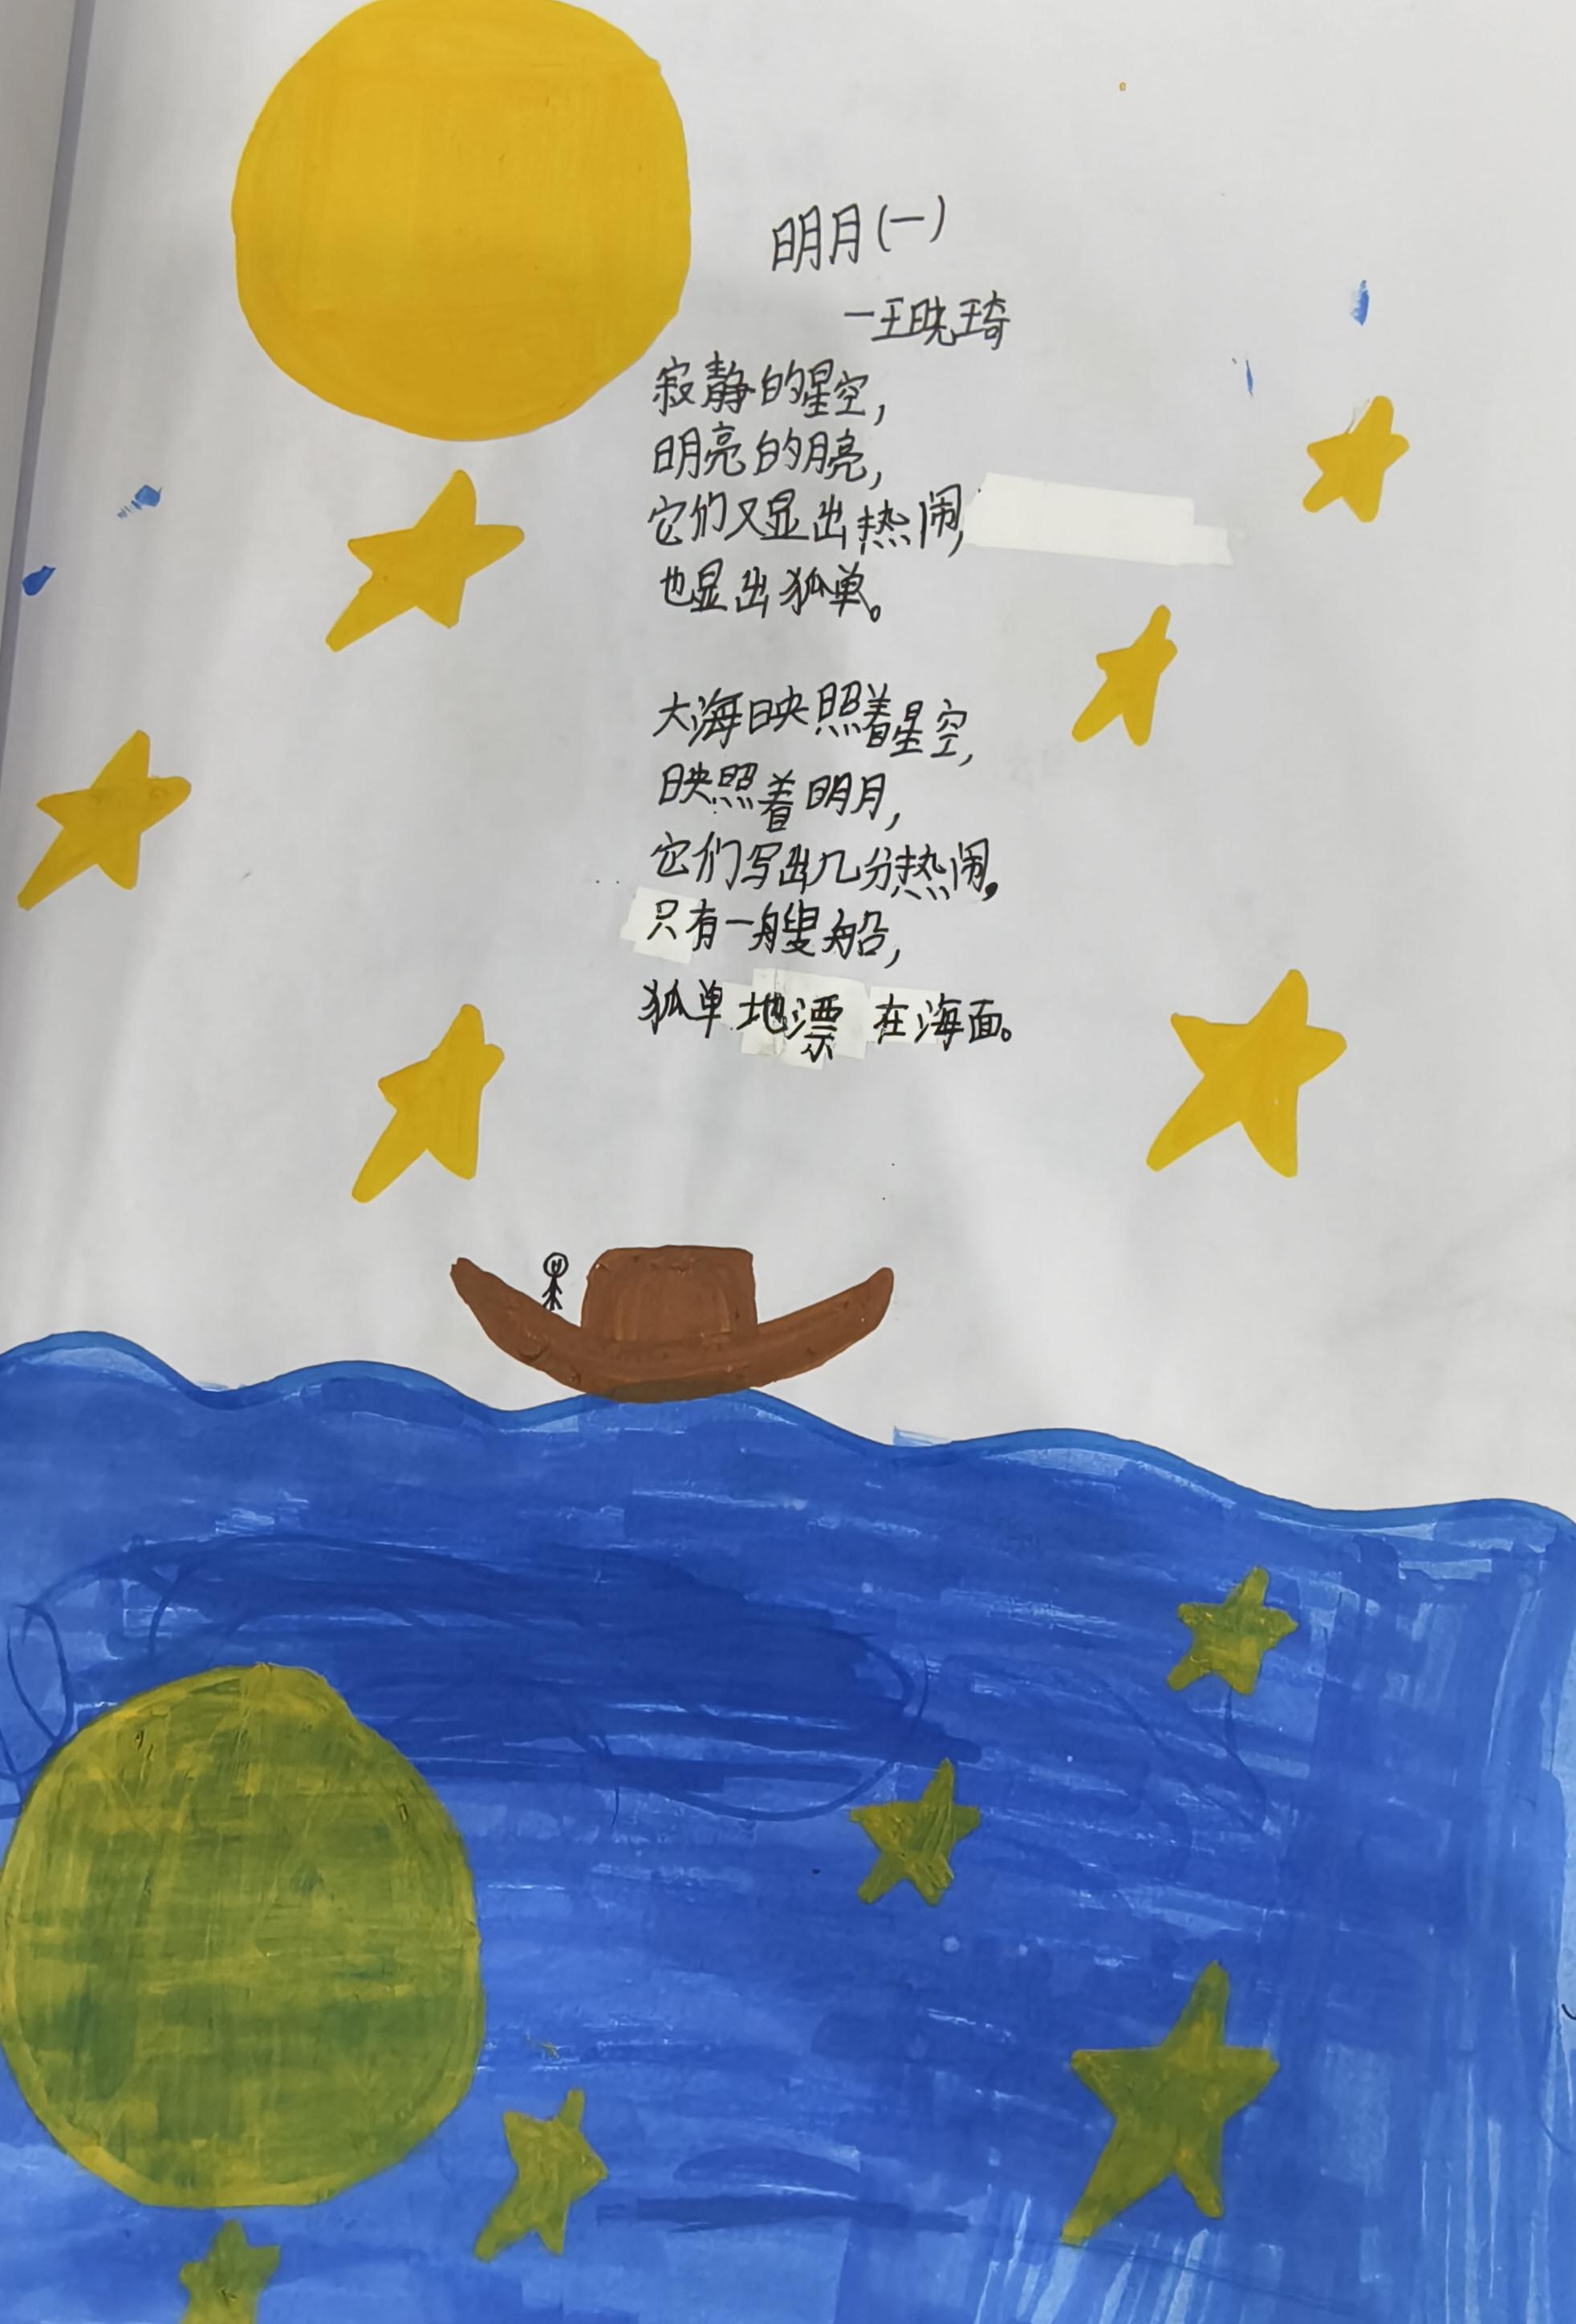 明月(一)
—王晓琦
寂静的星空,
明亮的月亮,
它们又显出热闹,
也显出狐单。
大海映照着星空,
映照着明月,
它们写出几分热闹,
只有一艘船,
狐单地漂在海面。